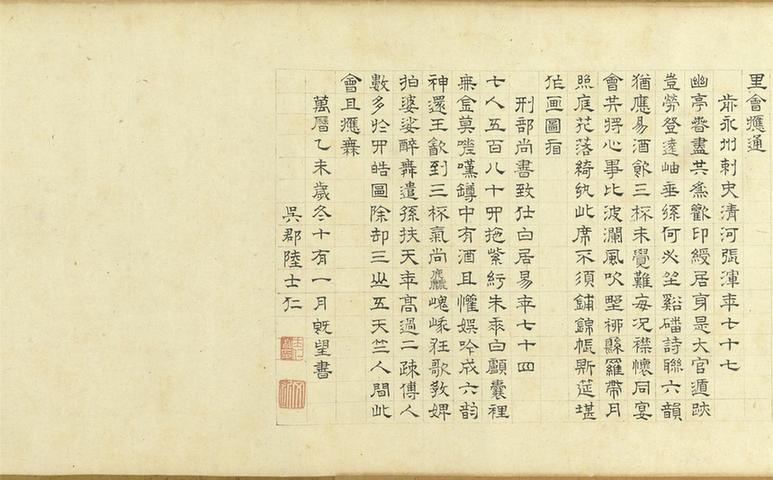 里會應通
前永州刺史清河張渾年七十七
幽亭春盡共為歡印綬居身是大官遁跡
豈勞登遠岫垂絲何必坐谿磻詩聯六韻
猶應易酒飲三杯未覺難每況襟懷同宴
會共將心事比波瀾風吹野柳懸羅帶月
照庭花落綺紈此席不須鋪錦帳斯筵堪
作画圖看
刑部尚書致仕白居易年七十四
七人五百八十四拖紫紆朱垂白顱囊裡
無金莫嗟嘆罇中有酒且懽娛吟成六韵
神還王飲到三杯氣尚麤嵬峨狂歌教婢
拍婆娑醉舞遣孫扶天年高過二疎傅人
數多於四皓圖除却三山五天竺人間此
會且應無
萬曆乙未歲冬十有一月既望書
吳郡陸士仁